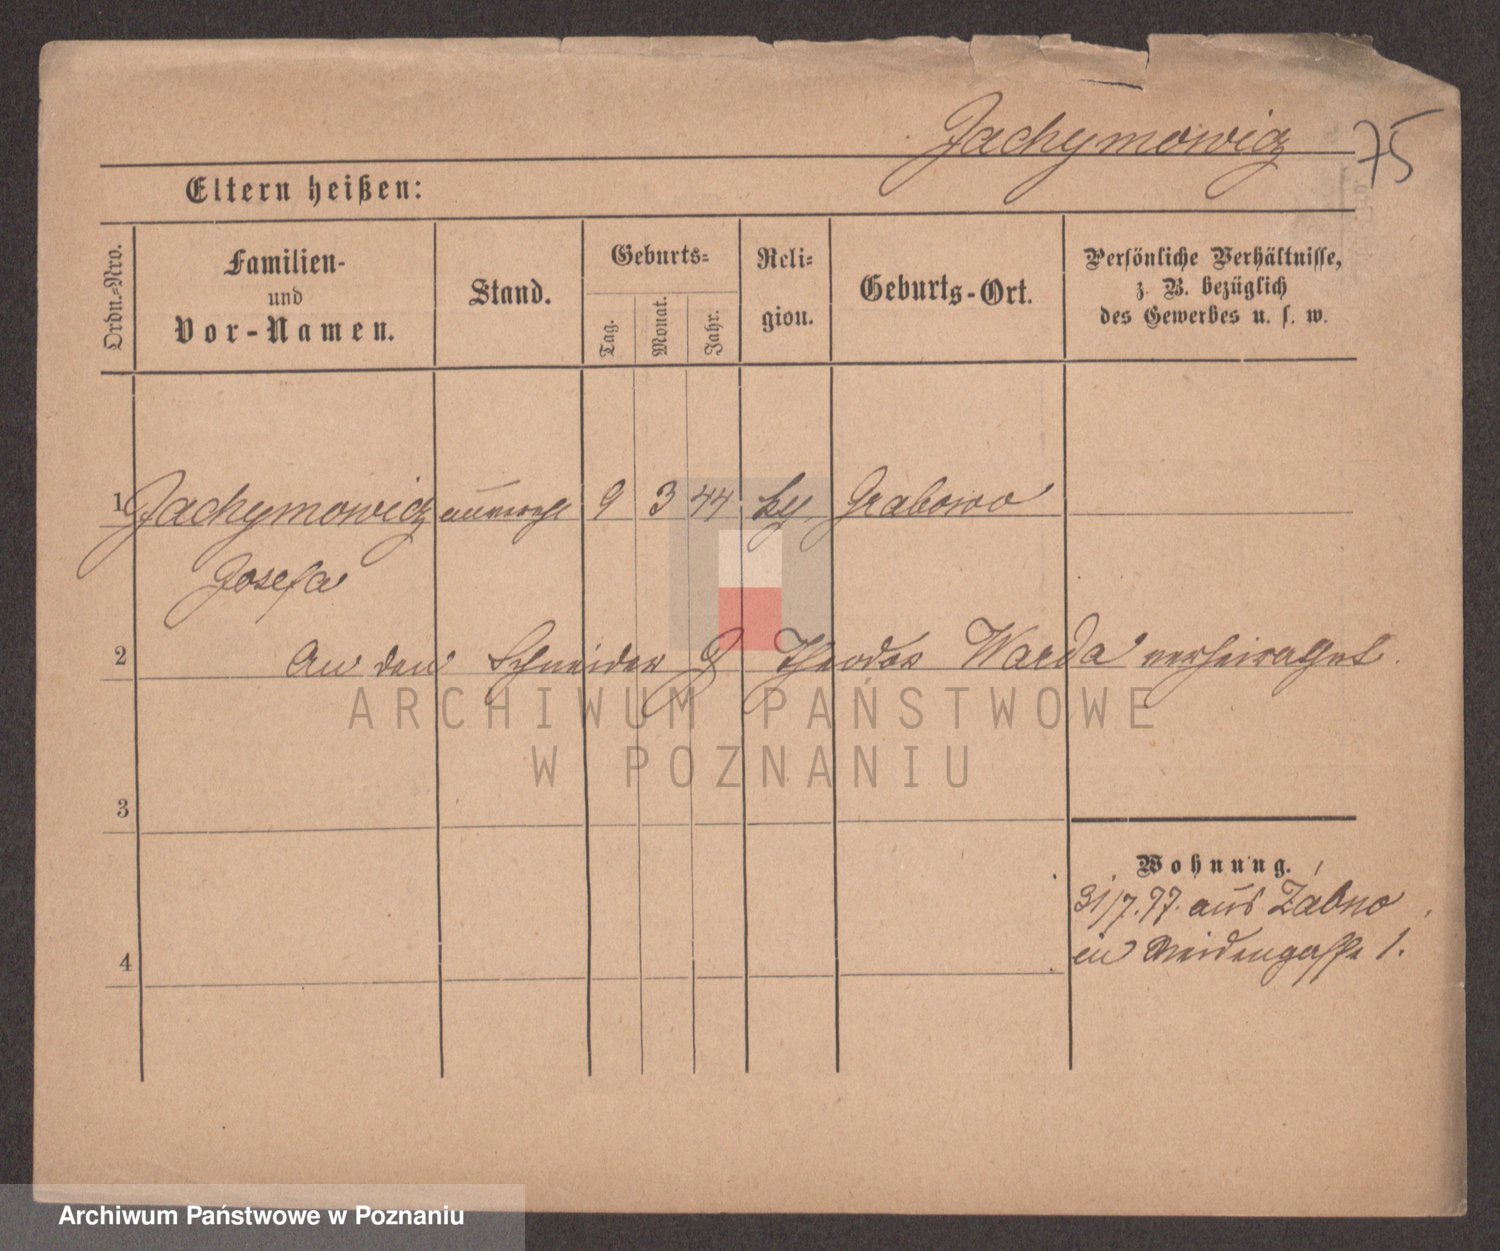 Jachymowicz
75
Eltern heißen:
Ordn.=Nro.
Familien-
und
Vor-Namen.
Stand.
Geburts=
Tag.
Monat.
Jahr.
Reli-
gion.
Geburts-Ort.
Persönliche Verhältnisse,
z. B. bezüglich
des Gewerbes u. s. w.
1 Jachymowicz 9 3 44 Grabowo
Josefa
2 An den Schneider Theodor Warda verheirathet.
ARCHIWUM PAŃSTWOWE
W POZNANIU
3
Wohnung.
31/7.97. aus Zabno
in Weidengasse 1.
4
Archiwum Państwowe w Poznaniu